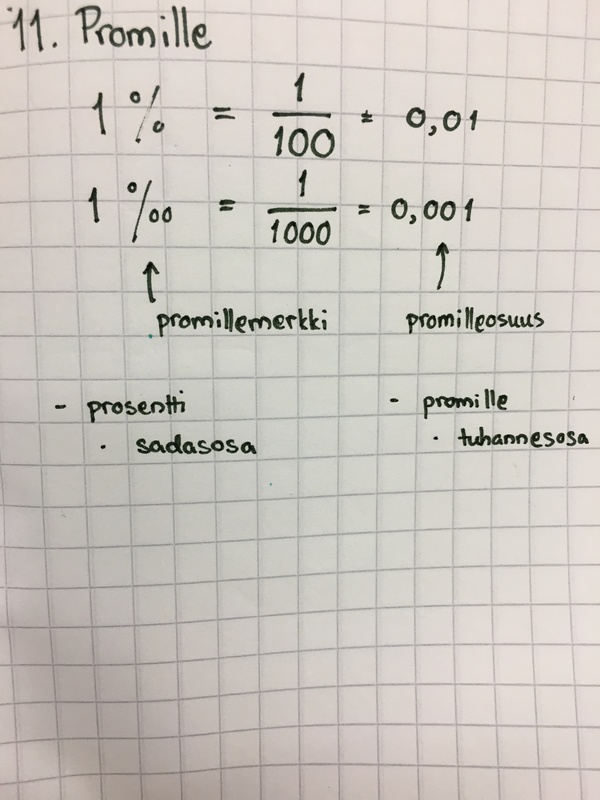 11. Promille
1 % = 1/100 = 0,01
1 ‰ = 1/1000 = 0,001
↑ ↑
promillemerkki promilleosuus
- prosentti - promille
· sadasosa · tuhannesosa